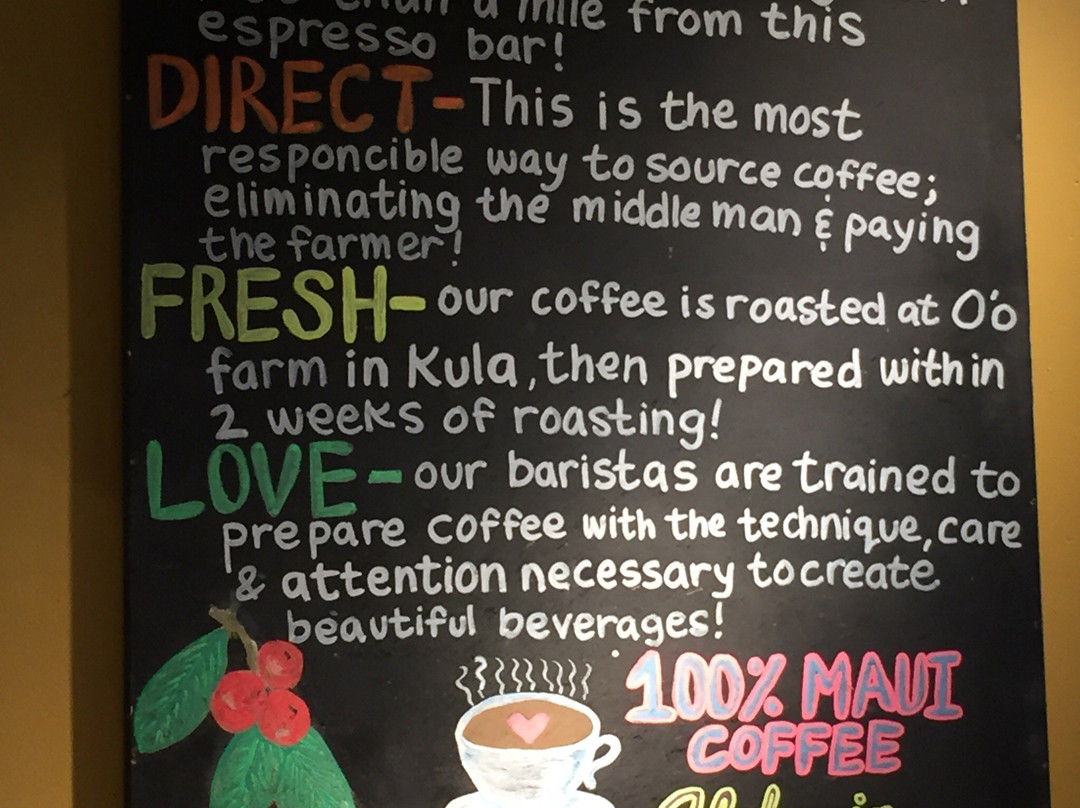 than a mile from this
espresso bar!
DIRECT-This is the most
responcible way to source coffee;
eliminating the middle man & paying
the farmer!
FRESH-our coffee is roasted at O'o
farm in Kula, then prepared within
2 weeks of roasting!
LOVE-our baristas are trained to
prepare coffee with the technique, care
& attention necessary to create
beautiful beverages!
100% MAUI
COFFEE